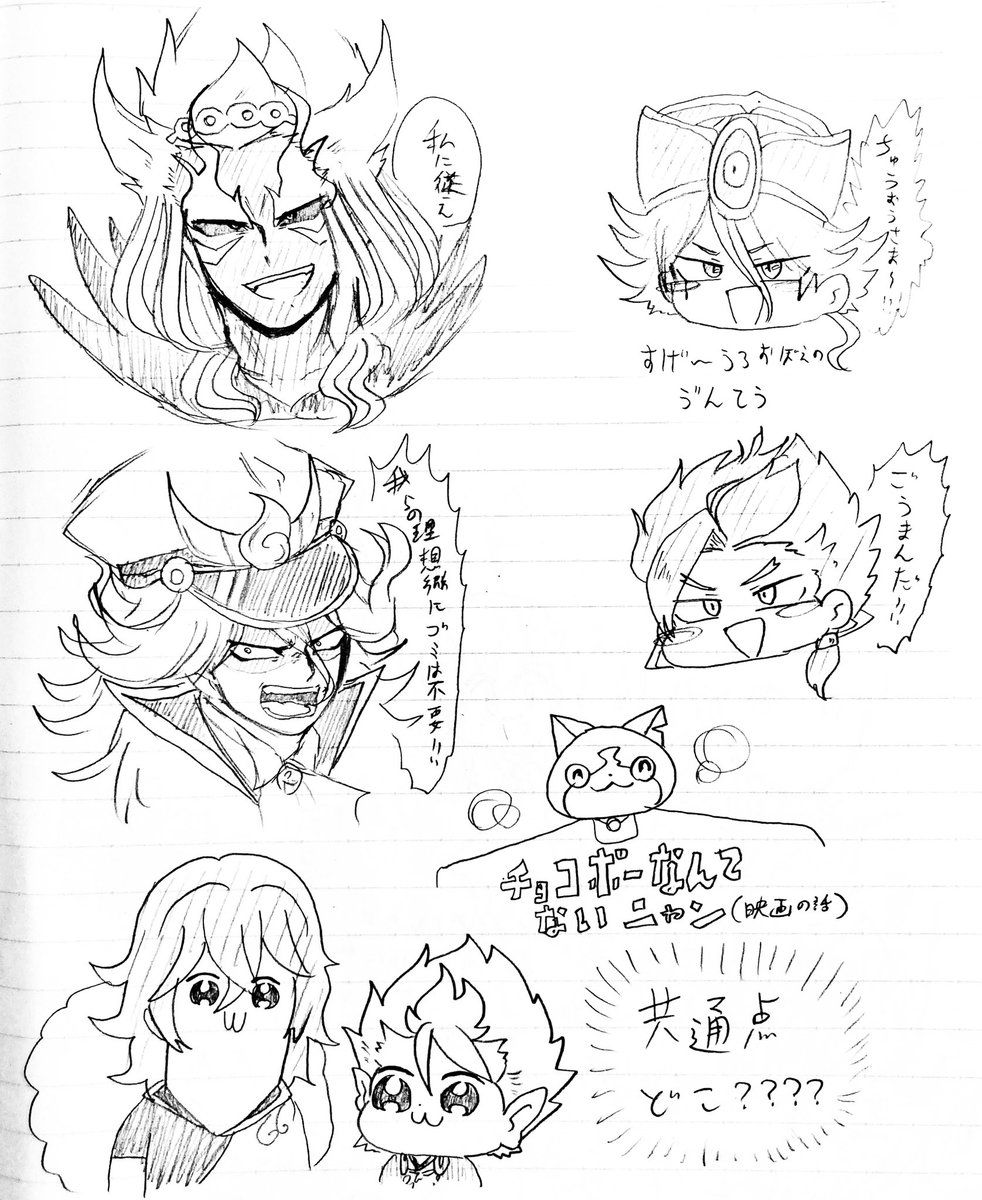 私に従え
ちゅうむうさぁ〜〜!!
すげ〜うろおぼえの
ゔんてう
我らの理想郷にゴミは不要!!
ごうまんだ!!
チョコボーなんて
ないニャン(映画の話)
共通点
どこ????